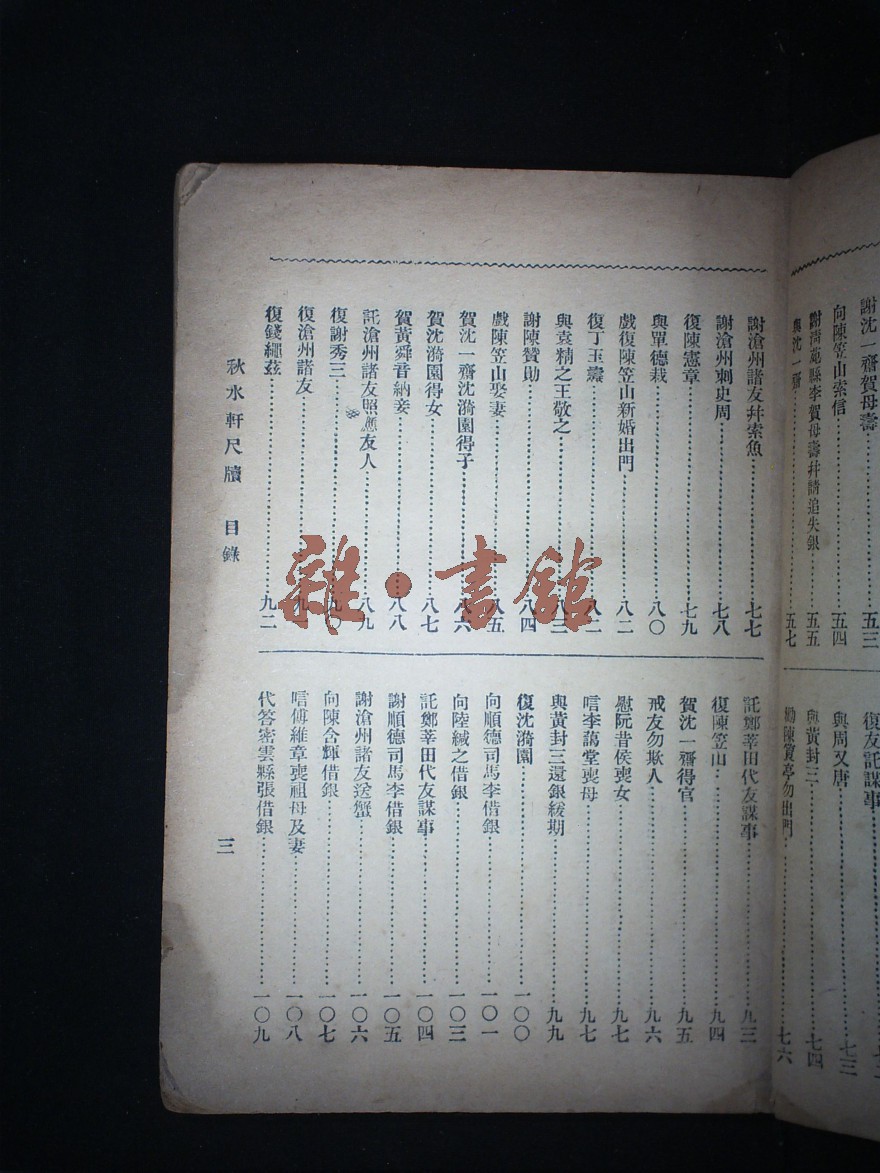 謝沈一齋賀母壽……五三
向陳笠山索信……五四
謝清苑縣李賀母壽幷請追失銀……五五
與沈一齋……五七
復友託謀事
與周又唐……七三
與黃封三……七四
勸陳賓亭勿出門……七六
謝滄州諸友幷索魚……七七
謝滄州刺史周……七八
復陳憲章……七九
與單德栽……八〇
戲復陳笠山新婚出門……八二
復丁玉壽……八二
與袁精之王敬之……八三
謝陳贊勛……八四
戲陳笠山娶妻……八五
賀沈一齋沈漪園得子……八六
賀沈漪園得女……八七
賀黃舜音納妾……八八
託滄州諸友照應友人……八九
復謝秀三……九〇
復滄州諸友……九一
復錢繩茲……九二
託鄭莘田代友謀事……九三
復陳笠山……九四
賀沈一齋得官……九五
戒友勿欺人……九六
慰阮昔侯喪女……九七
唁李藹堂喪母……九七
與黃封三還銀緩期……九九
復沈漪園……一〇〇
向順德司馬李借銀……一〇一
向陸緘之借銀……一〇三
託鄭莘田代友謀事……一〇四
謝順德司馬李借銀……一〇五
謝滄州諸友送蟹……一〇六
向陳含輝借銀……一〇七
唁傅維章喪祖母及妻……一〇八
代答密雲縣張借銀……一〇九
秋水軒尺牘 目錄
三
雜·書館